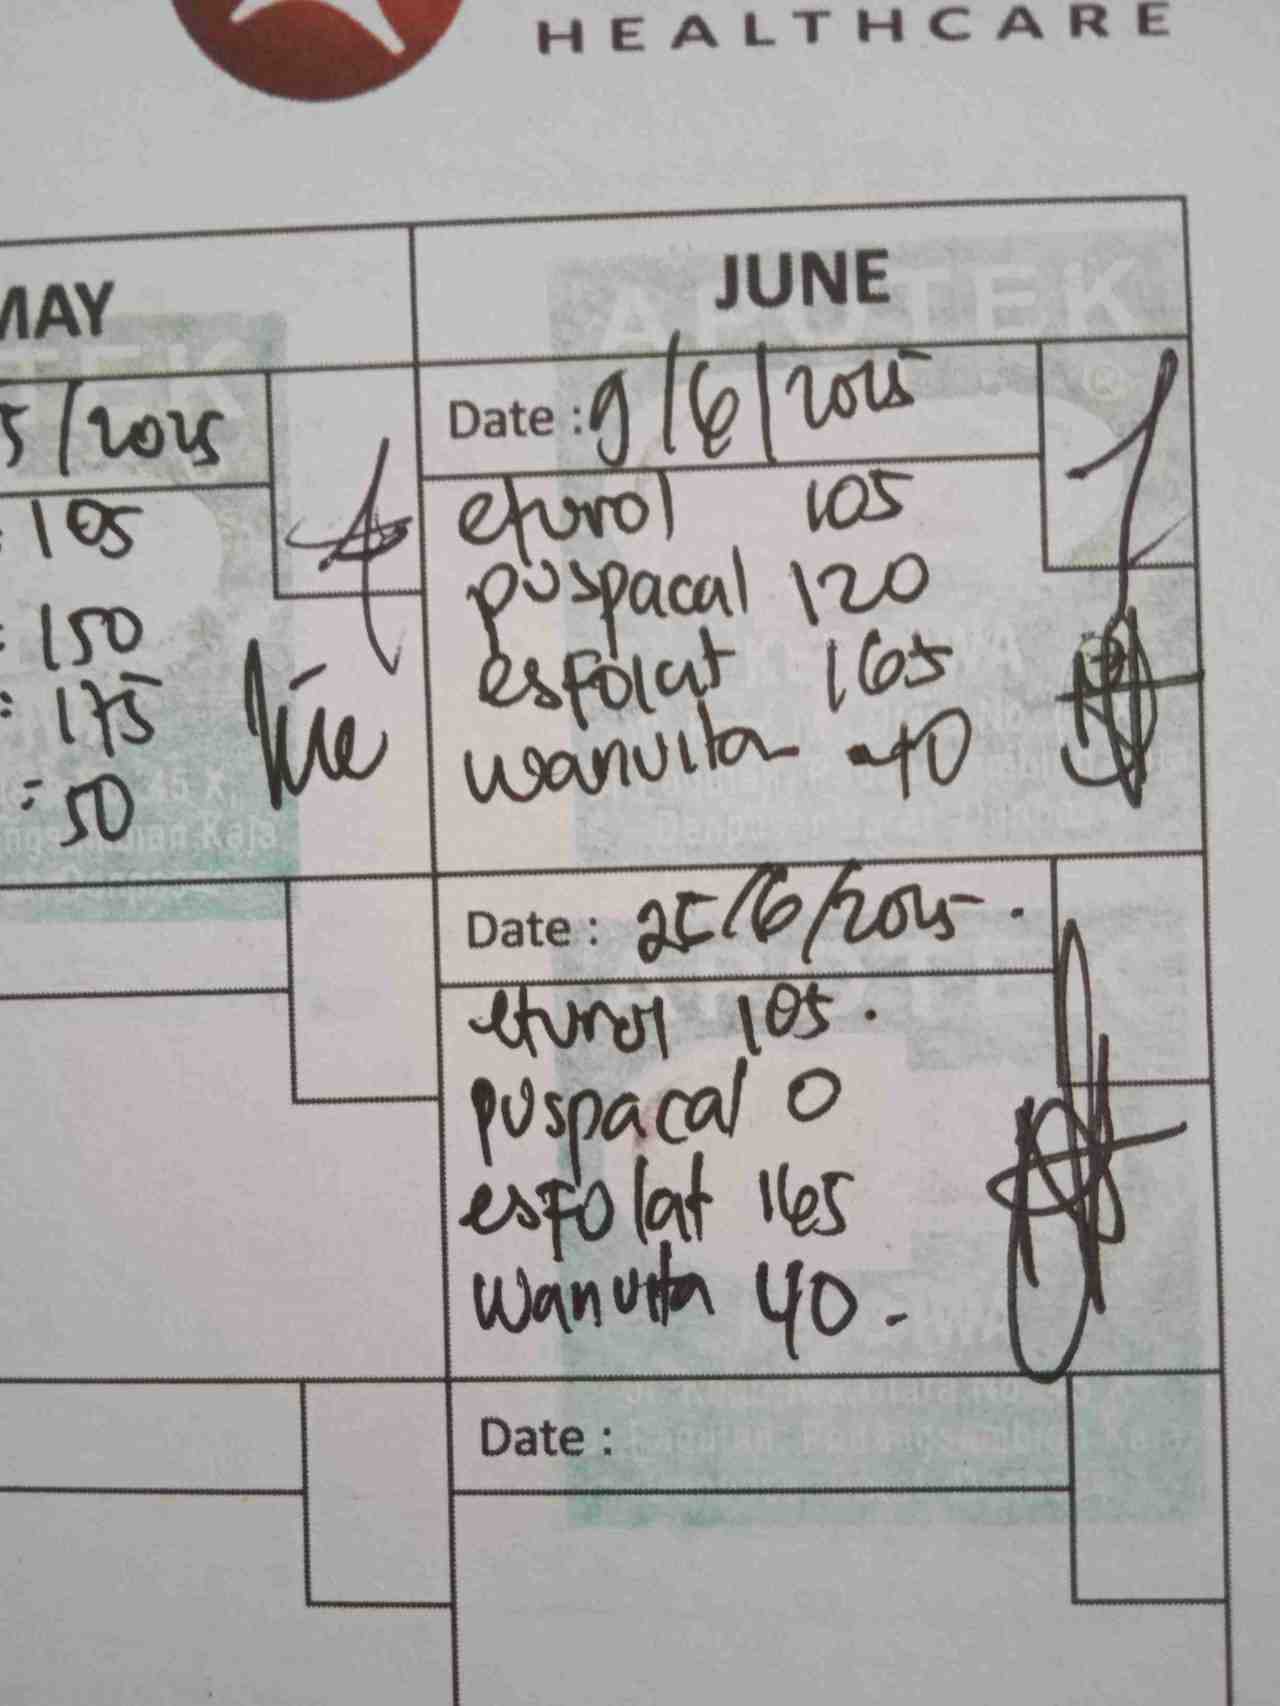 HEALTHCARE
MAY
5/2025
= 105
= 150
= 175
= 50
JUNE
Date : 9/6/2025
eturol 105
puspacal 120
esfolat 165
wanvita 40
Date : 25/6/2025.
eturol 105.
puspacal 0
esfolat 165
wanvita 40.
Date :
APOTEK